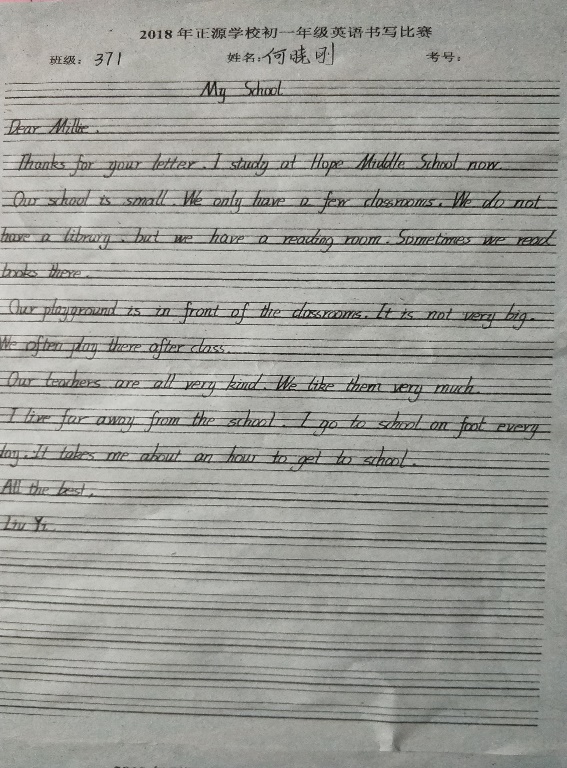 2018年正源学校初一年级英语书写比赛
班级: 371 姓名: 何晓刚 考号:
My School
Dear Millie,
Thanks for your letter. I study at Hope Middle School now.
Our school is small. We only have a few classrooms. We do not
have a library, but we have a reading room. Sometimes we read
books there.
Our playground is in front of the classrooms. It is not very big.
We often play there after class.
Our teachers are all very kind. We like them very much.
I live far away from the school. I go to school on foot every
day. It takes me about an hour to get to school.
All the best,
Liu Yi